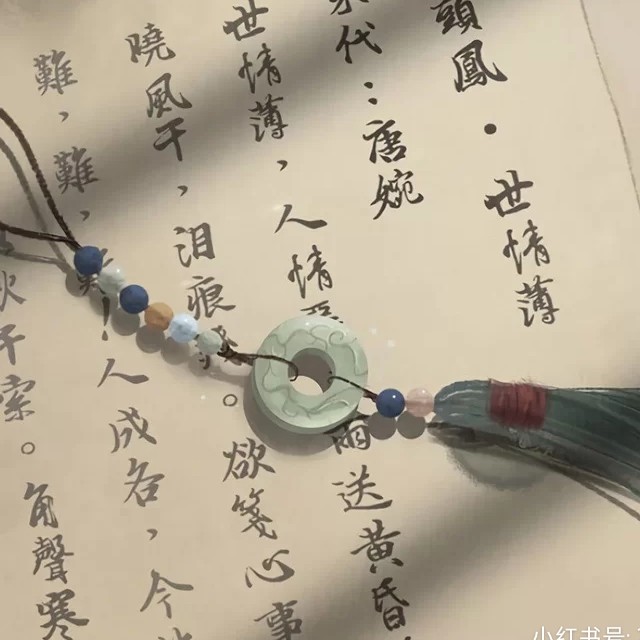 頭鳳·世情薄
代：唐婉
世情薄，人情 雨送黃昏，
曉風干，泪痕 。欲箋心事
難，難， ！人成各，今
秋千索。角聲寒
小红书号: